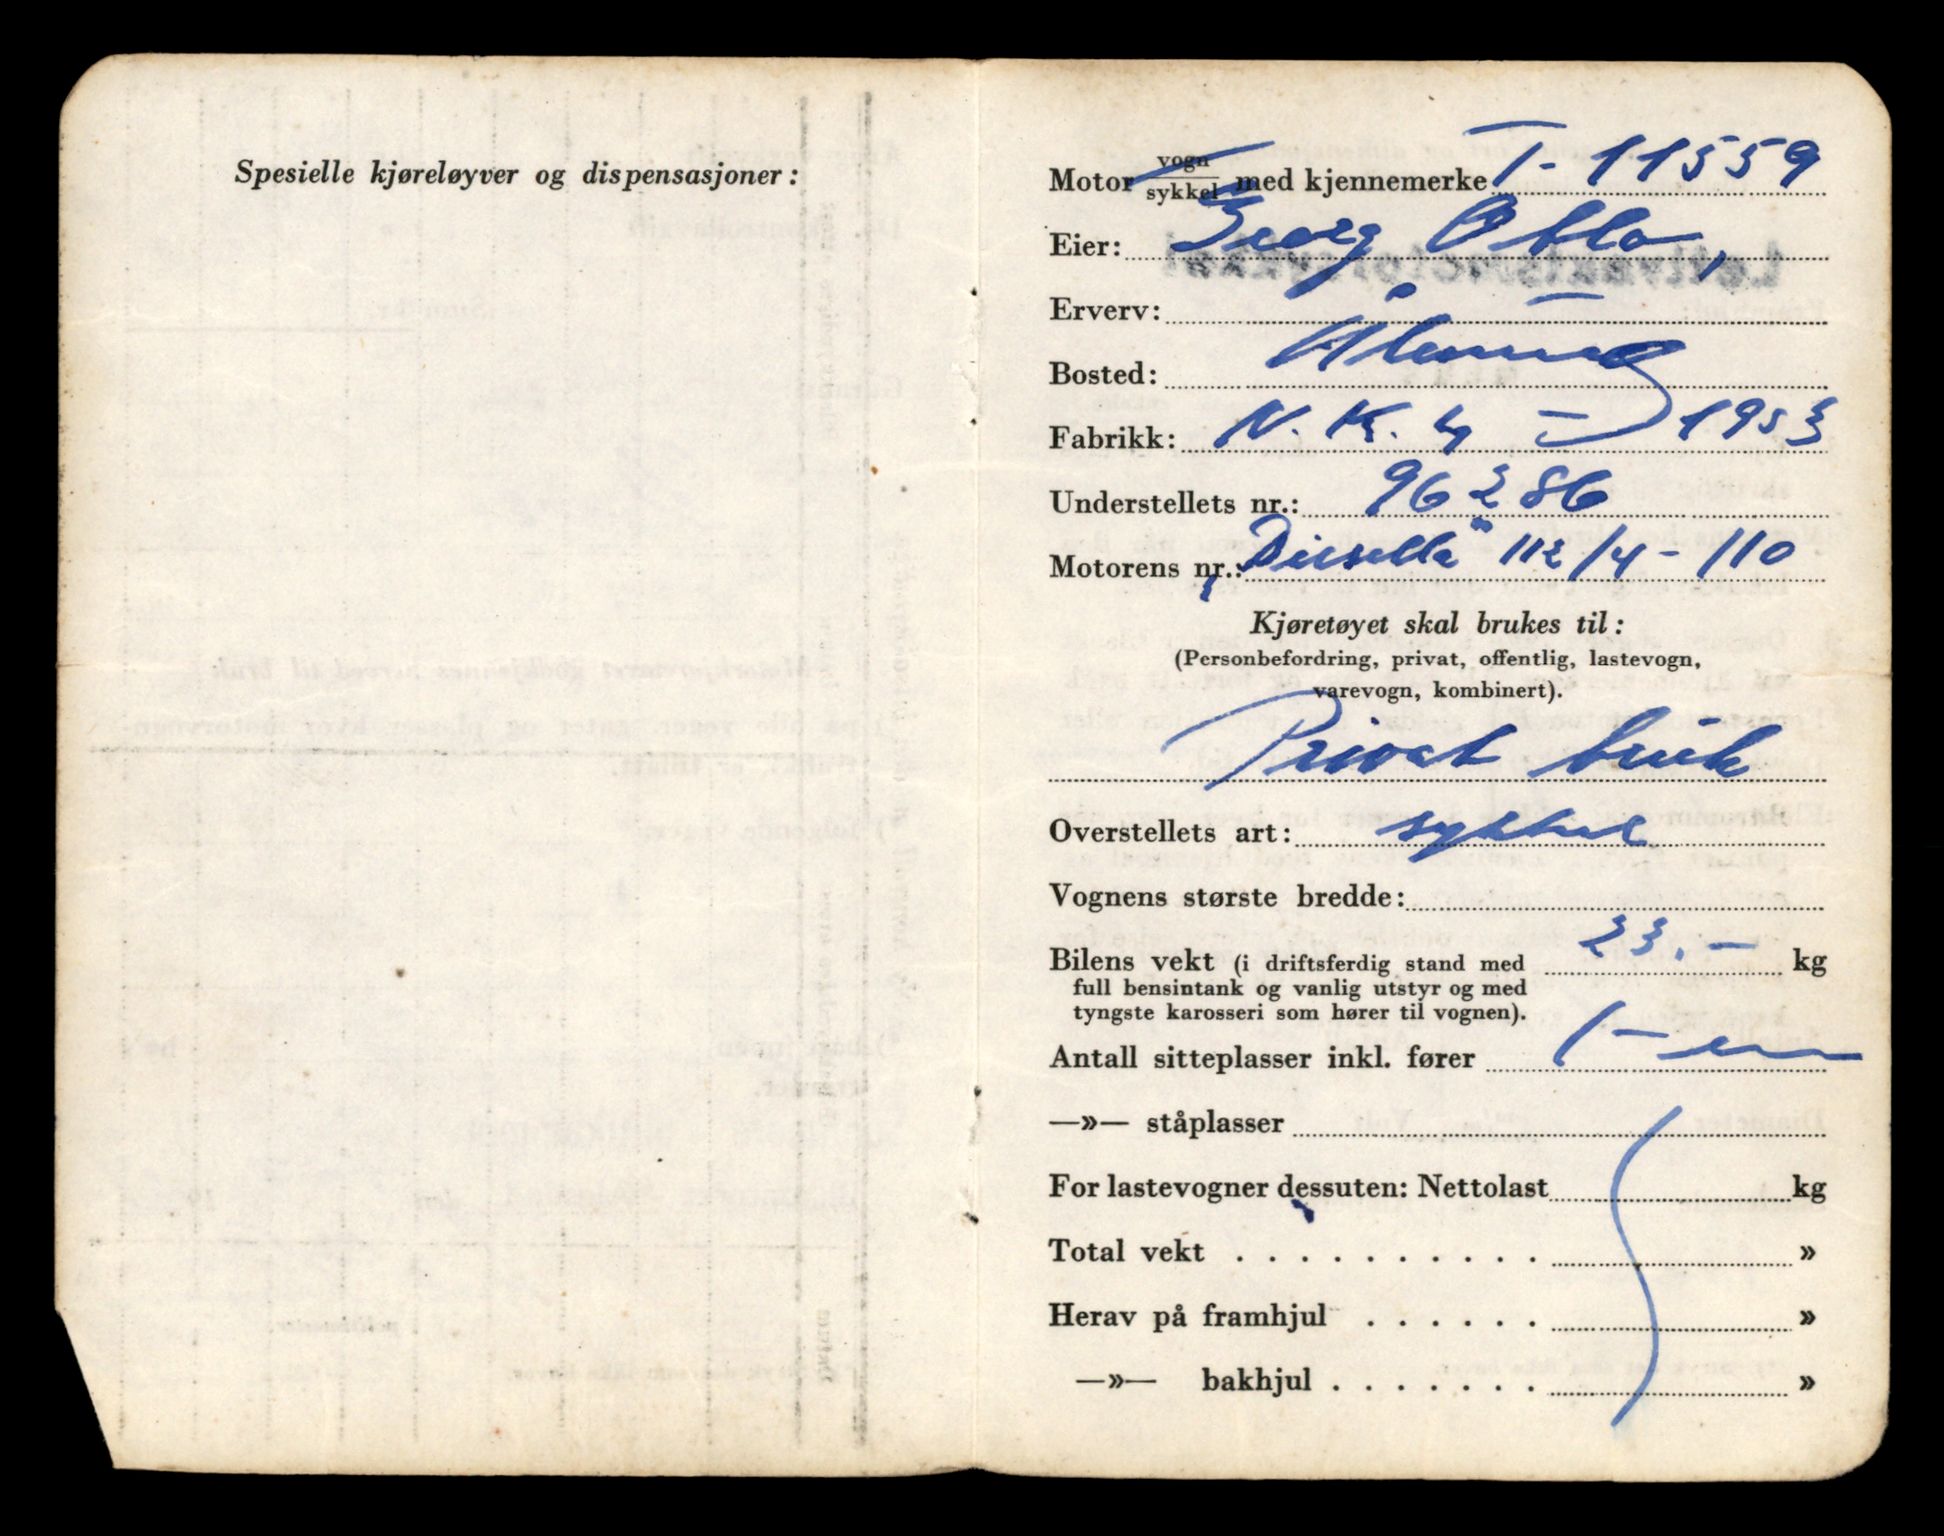 Spesielle kjøreløyver og dispensasjoner:
Motor vogn/sykkel med kjennemerke T-11559
Eier: Georg Otlo,
Erverv:
Bosted: Ålesund
Fabrikk: N.K.4 – 1953
Understellets nr.: 96286
Motorens nr.: "Diesella" 112/4-110
Kjøretøyet skal brukes til:
(Personbefordring, privat, offentlig, lastevogn,
varevogn, kombinert).
Privat bruk
Overstellets art: sykkel
Vognens største bredde:
Bilens vekt (i driftsferdig stand med 23.– kg
full bensintank og vanlig utstyr og med
tyngste karosseri som hører til vognen).
Antall sitteplasser inkl. fører 1– en
—»— ståplasser
For lastevogner dessuten: Nettolast kg
Total vekt . . . . . . . . . . »
Herav på framhjul . . . . . . »
—»— bakhjul . . . . . . . »